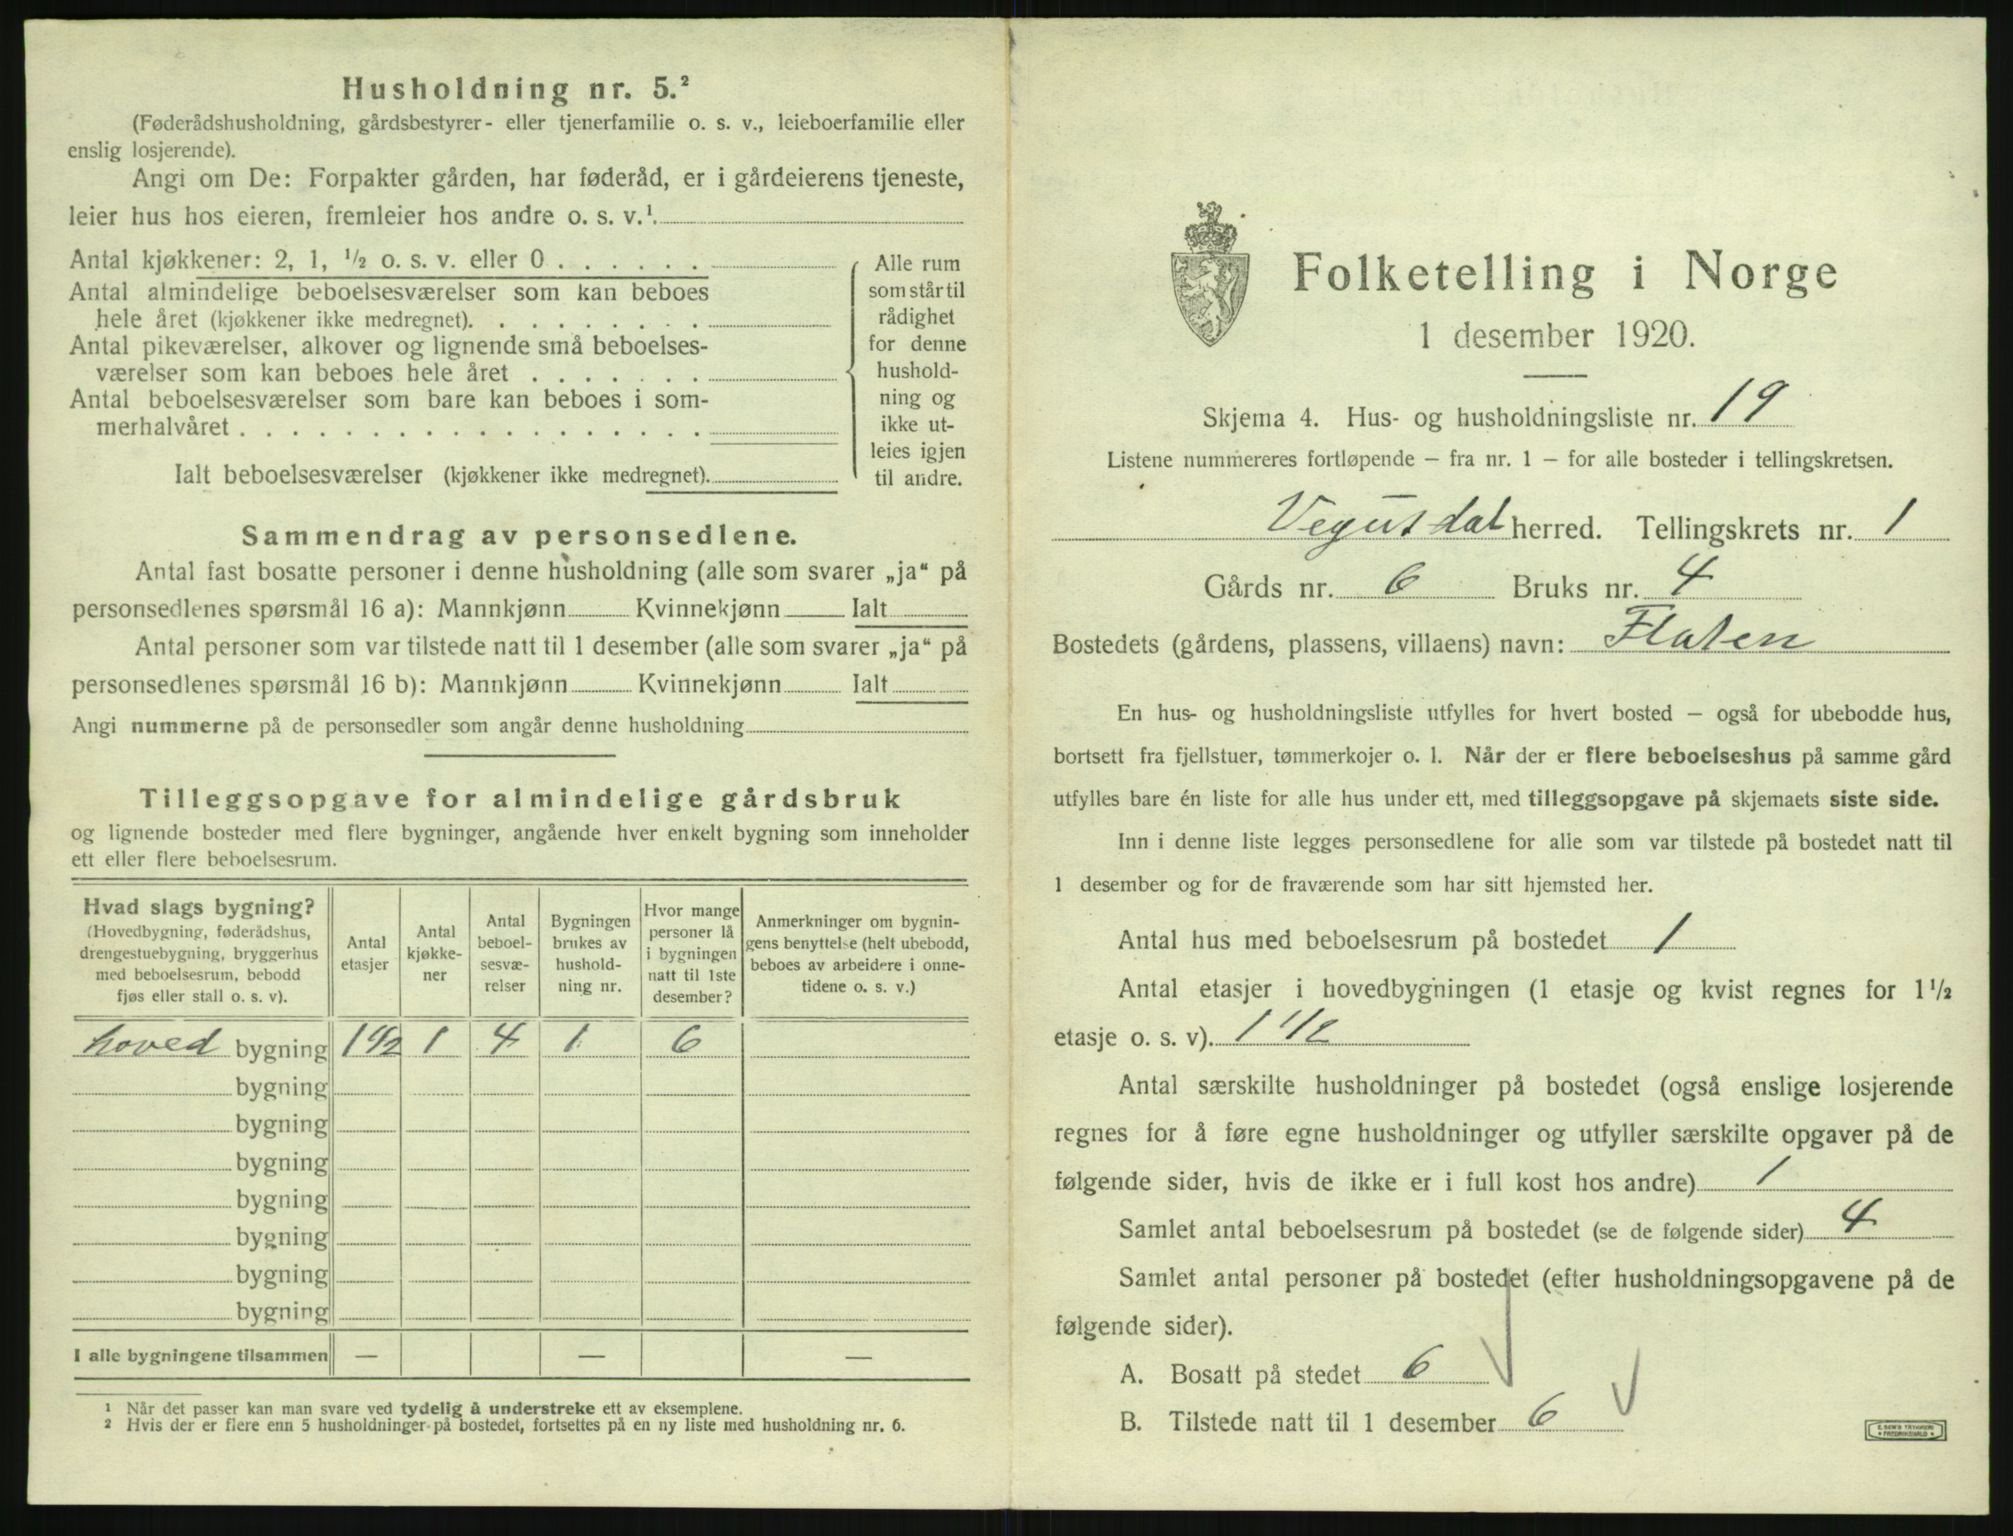 Husholdning nr. 5.²
(Føderådshusholdning, gårdsbestyrer- eller tjenerfamilie o. s. v., leieboerfamilie eller
enslig losjerende).
Angi om De: Forpakter gården, har føderåd, er i gårdeierens tjeneste,
leier hus hos eieren, fremleier hos andre o. s. v.¹.
Antal kjøkkener: 2, 1, ½ o. s. v. eller 0 . . . . . .
Antal almindelige beboelsesværelser som kan beboes
hele året (kjøkkener ikke medregnet). . . . . . . . .
Antal pikeværelser, alkover og lignende små beboelses-
værelser som kan beboes hele året . . . . . . .
Antal beboelsesværelser som bare kan beboes i som-
merhalvåret . . . . . . . . . . . . . . . . . .
Ialt beboelsesværelser (kjøkkener ikke medregnet).
Alle rum
som står til
rådighet
for denne
hushold-
ning og
ikke ut-
leies igjen
til andre.
Sammendrag av personsedlene.
Antal fast bosatte personer i denne husholdning (alle som svarer „ja“ på
personsedlenes spørsmål 16 a): Mannkjønn Kvinnekjønn Ialt
Antal personer som var tilstede natt til 1 desember (alle som svarer „ja“ på
personsedlenes spørsmål 16 b): Mannkjønn Kvinnekjønn Ialt
Angi nummerne på de personsedler som angår denne husholdning
Tilleggsopgave for almindelige gårdsbruk
og lignende bosteder med flere bygninger, angående hver enkelt bygning som inneholder
ett eller flere beboelsesrum.
Hvad slags bygning?
(Hovedbygning, føderådshus,
drengestuebygning, bryggerhus
med beboelsesrum, bebodd
fjøs eller stall o. s. v).
Antal
etasjer
Antal
kjøkke-
ner
Antal
beboel-
sesvæ-
relser
Bygningen
brukes av
hushold-
ning nr.
Hvor mange
personer lå
i bygningen
natt til 1ste
desember?
Anmerkninger om bygnin-
gens benyttelse (helt ubebodd,
beboes av arbeidere i onne-
tidene o. s. v.)
hoved bygning 1 1/2 1 4 1 6
bygning
bygning
bygning
bygning
bygning
bygning
bygning
I alle bygningene tilsammen — — —
1 Når det passer kan man svare ved tydelig å understreke ett av eksemplene.
2 Hvis der er flere enn 5 husholdninger på bostedet, fortsettes på en ny liste med husholdning nr. 6.
Folketelling i Norge
1 desember 1920.
Skjema 4. Hus- og husholdningsliste nr. 19
Listene nummereres fortløpende – fra nr. 1 – for alle bosteder i tellingskretsen.
Vegusdal herred. Tellingskrets nr. 1
Gårds nr. 6 Bruks nr. 4
Bostedets (gårdens, plassens, villaens) navn: Flaten
En hus- og husholdningsliste utfylles for hvert bosted – også for ubebodde hus,
bortsett fra fjellstuer, tømmerkojer o. l. Når der er flere beboelseshus på samme gård
utfylles bare én liste for alle hus under ett, med tilleggsopgave på skjemaets siste side.
Inn i denne liste legges personsedlene for alle som var tilstede på bostedet natt til
1 desember og for de fraværende som har sitt hjemsted her.
Antal hus med beboelsesrum på bostedet 1
Antal etasjer i hovedbygningen (1 etasje og kvist regnes for 1½
etasje o. s. v). 1 1/2
Antal særskilte husholdninger på bostedet (også enslige losjerende
regnes for å føre egne husholdninger og utfyller særskilte opgaver på de
følgende sider, hvis de ikke er i full kost hos andre) 1
Samlet antal beboelsesrum på bostedet (se de følgende sider) 4
Samlet antal personer på bostedet (efter husholdningsopgavene på de
følgende sider).
A. Bosatt på stedet 6
B. Tilstede natt til 1 desember 6